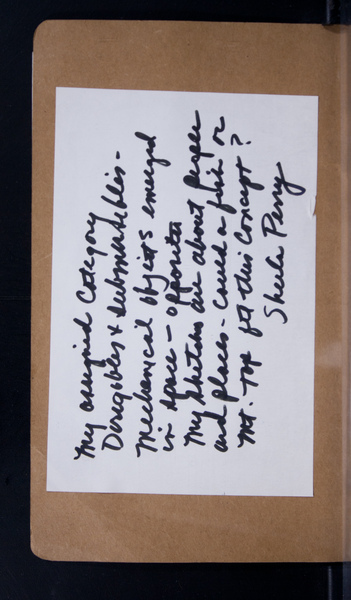 My assigned Category
Dirigibles & submersibles -
Mechanical objects emerged
in space - opposites
My sketches are about people
and places - could a fish or
Mt. Top fit this Concept?
Sheila Perry